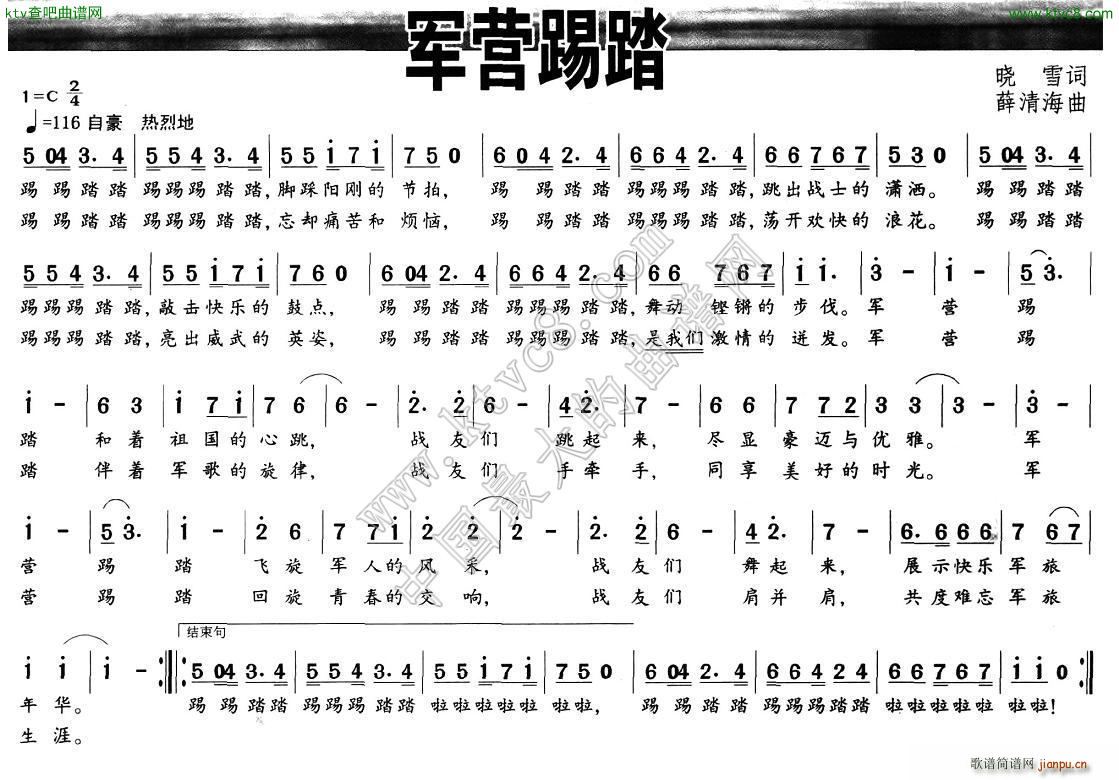 ktv查吧曲谱网
www.ktvc8.com
http://www.ktvc8.com
军营踢踏
晓 雪词
薛清海曲
1=C 2/4
♩=116 自豪 热烈地
5 04 3. 4 | 5 5 4 3. 4 | 5 5 i 7 i | 7 5 0 | 6 0 4 2. 4 | 6 6 4 2. 4 | 6 6 7 6 7 | 5 3 0 | 5 04 3. 4 |
踢 踢 踏 踏 踢踢踢 踏 踏,脚踩阳刚的 节拍, 踢 踢 踏 踏 踢踢踢 踏 踏,跳出战士的 潇洒。 踢 踢 踏 踏
踢 踢 踏 踏 踢踢踢 踏 踏,忘却痛苦和 烦恼, 踢 踢 踏 踏 踢踢踢 踏 踏,荡开欢快的 浪花。 踢 踢 踏 踏
5 5 4 3. 4 | 5 5 i 7 i | 7 6 0 | 6 04 2. 4 | 6 6 4 2. 4 | 6 6 7 6 7 | i i. | 3 - | i - | 5 3. |
踢踢踢 踏 踏,敲击快乐的 鼓点, 踢 踢 踏 踏 踢踢踢 踏 踏,舞动 铿锵的 步 伐。军 营 踢
踢踢踢 踏 踏,亮出威武的 英姿, 踢 踢 踏 踏 踢踢踢 踏 踏,是我们激情的 迸 发。军 营 踢
i - | 6 3 | i 7 i | 7 6 | 6 - | 2. 2 | 6 - | 4 2. | 7 - | 6 6 | 7 7 2 | 3 3 | 3 - | 3 - |
踏 和 着 祖 国 的 心 跳, 战 友 们 跳 起 来, 尽 显 豪 迈 与 优 雅。 军
踏 伴 着 军 歌 的 旋 律, 战 友 们 手 牵 手, 同 享 美 好 的 时 光。 军
i - | 5 3. | i - | 2 6 | 7 7 i | 2 2 | 2 - | 2. 2 | 6 - | 4 2. | 7 - | 6. 6 6 6 | 7 6 7 |
营 踢 踏 飞 旋 军 人 的 风 采, 战 友 们 舞 起 来, 展 示快乐 军 旅
营 踢 踏 回 旋 青 春 的 交 响, 战 友 们 肩 并 肩, 共 度难忘 军 旅
结束句
i i | i - :||: 5 04 3. 4 | 5 5 4 3. 4 | 5 5 i 7 i | 7 5 0 | 6 04 2. 4 | 6 6 4 2. 4 | 6 6 7 6 7 | i i 0 :||
年 华。 踢 踢 踏 踏 踢踢踢 踏 踏 啦啦啦啦啦 啦啦, 踢 踢 踏 踏 踢踢踢踏 踏 啦啦啦啦啦 啦啦!
生 涯。
www.ktvc8.com
中国最大的曲谱网
歌谱简谱网
jianpu.cn